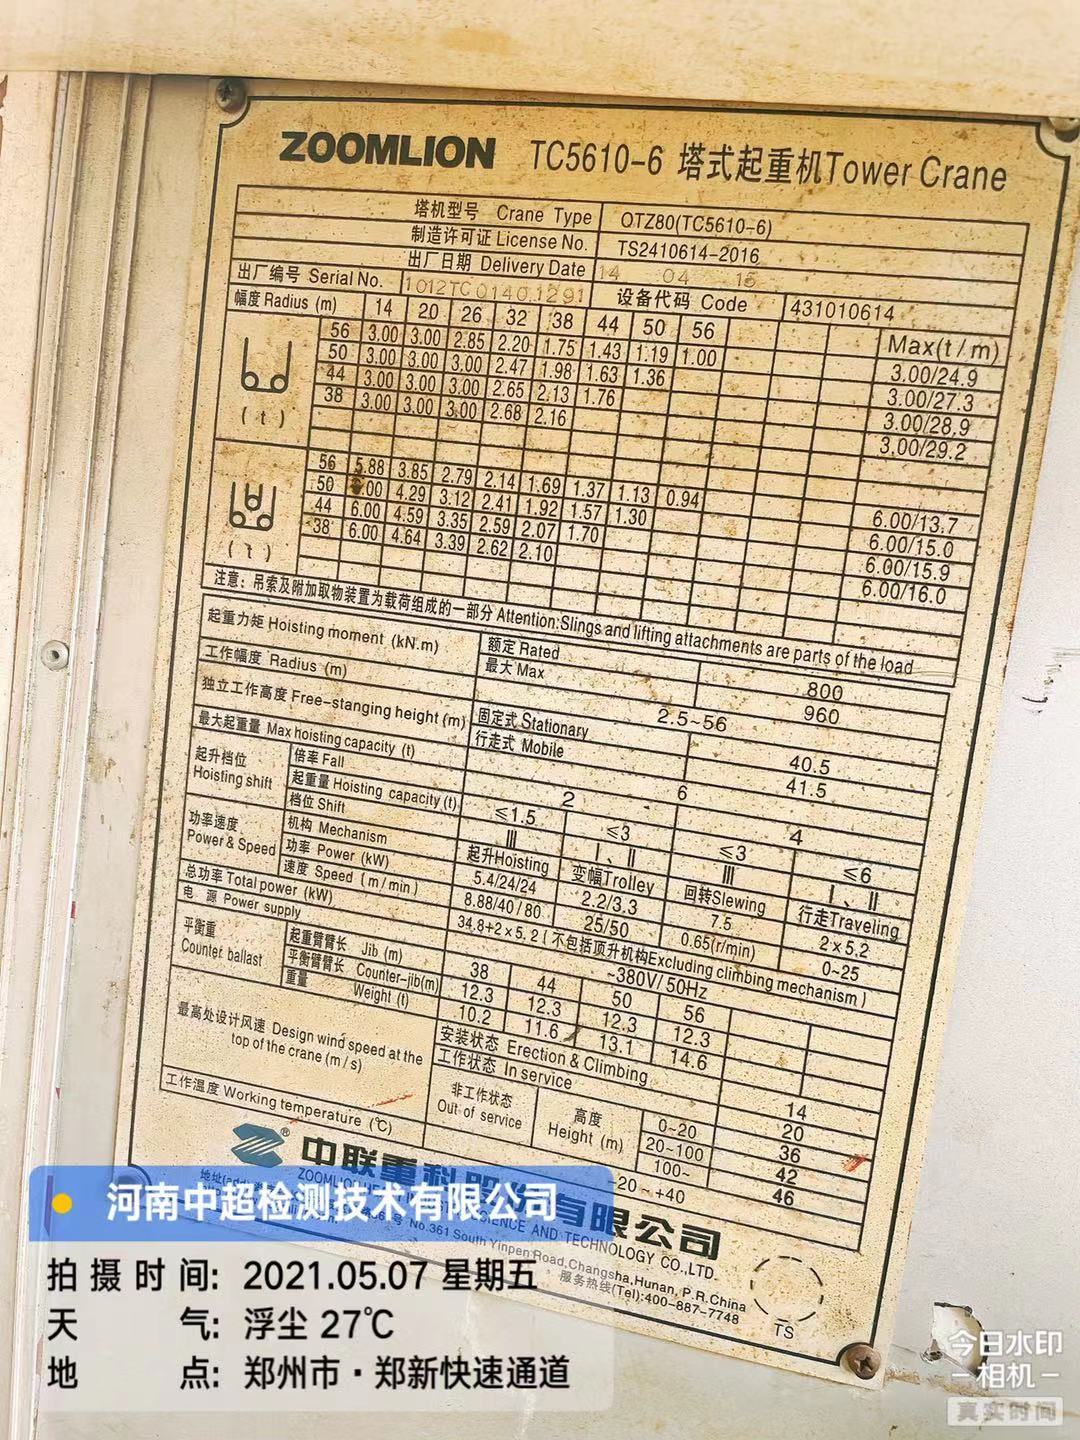 ZOOMLION TC5610-6 塔式起重机Tower Crane
塔机型号 Crane Type QTZ80(TC5610-6)
制造许可证 License No. TS2410614-2016
出厂日期 Delivery Date 14 04 15
出厂编号 Serial No. 1012TC01401291 设备代码 Code 431010614
幅度 Radius (m) 14 20 26 32 38 44 50 56 Max(t/m)
56 3.00 3.00 2.85 2.20 1.75 1.43 1.19 1.00 3.00/24.9
50 3.00 3.00 3.00 2.47 1.98 1.63 1.36 3.00/27.3
44 3.00 3.00 3.00 2.65 2.13 1.76 3.00/28.9
38 3.00 3.00 3.00 2.68 2.16 3.00/29.2
(t)
56 5.88 3.85 2.79 2.14 1.69 1.37 1.13 0.94 6.00/13.7
50 .00 4.29 3.12 2.41 1.92 1.57 1.30 6.00/15.0
44 6.00 4.59 3.35 2.59 2.07 1.70 6.00/15.9
38 6.00 4.64 3.39 2.62 2.10 6.00/16.0
(t)
注意：吊索及附加取物装置为载荷组成的一部分 Attention:Slings and lifting attachments are parts of the load
起重力矩 Hoisting moment (kN.m) 额定 Rated 800
最大 Max 960
工作幅度 Radius (m) 2.5~56
独立工作高度 Free-stanging height (m) 固定式 Stationary 40.5
行走式 Mobile 41.5
最大起重量 Max hoisting capacity (t) 6
起升档位 Hoisting shift 倍率 Fall 2 4
起重量 Hoisting capacity (t) ≤1.5 ≤3 ≤3 ≤6
档位 Shift Ⅲ Ⅰ、Ⅱ Ⅲ Ⅰ、Ⅱ
功率速度 Power & Speed 机构 Mechanism 起升Hoisting 变幅Trolley 回转Slewing 行走Traveling
功率 Power (kW) 5.4/24/24 2.2/3.3 7.5 2×5.2
速度 Speed (m/min) 8.88/40/80 25/50 0.65(r/min) 0~25
总功率 Total power (kW) 34.8+2×5.2(不包括顶升机构Excluding climbing mechanism)
电 源 Power supply ~380V/50Hz
平衡重 Counter ballast 起重臂臂长 Jib (m) 38 44 50 56
平衡臂臂长 Counter-jib(m) 12.3 12.3 12.3 12.3
重量 Weight (t) 10.2 11.6 13.1 14.6
最高处设计风速 Design wind speed at the top of the crane (m/s) 安装状态 Erection & Climbing 14
工作状态 In service 20
非工作状态 Out of service 高度 Height (m) 0~20 36
20~100 42
100~ 46
工作温度 Working temperature (℃) -20~+40
® 中联重科股份有限公司
SCIENCE AND TECHNOLOGY CO.,LTD.
No.361 South Yinpen Road,Changsha,Hunan, P.R.China
服务热线(Tel):400-887-7748
TS
河南中超检测技术有限公司
拍摄时间: 2021.05.07 星期五
天 气: 浮尘 27℃
地 点: 郑州市·郑新快速通道
今日水印
相机
真实时间